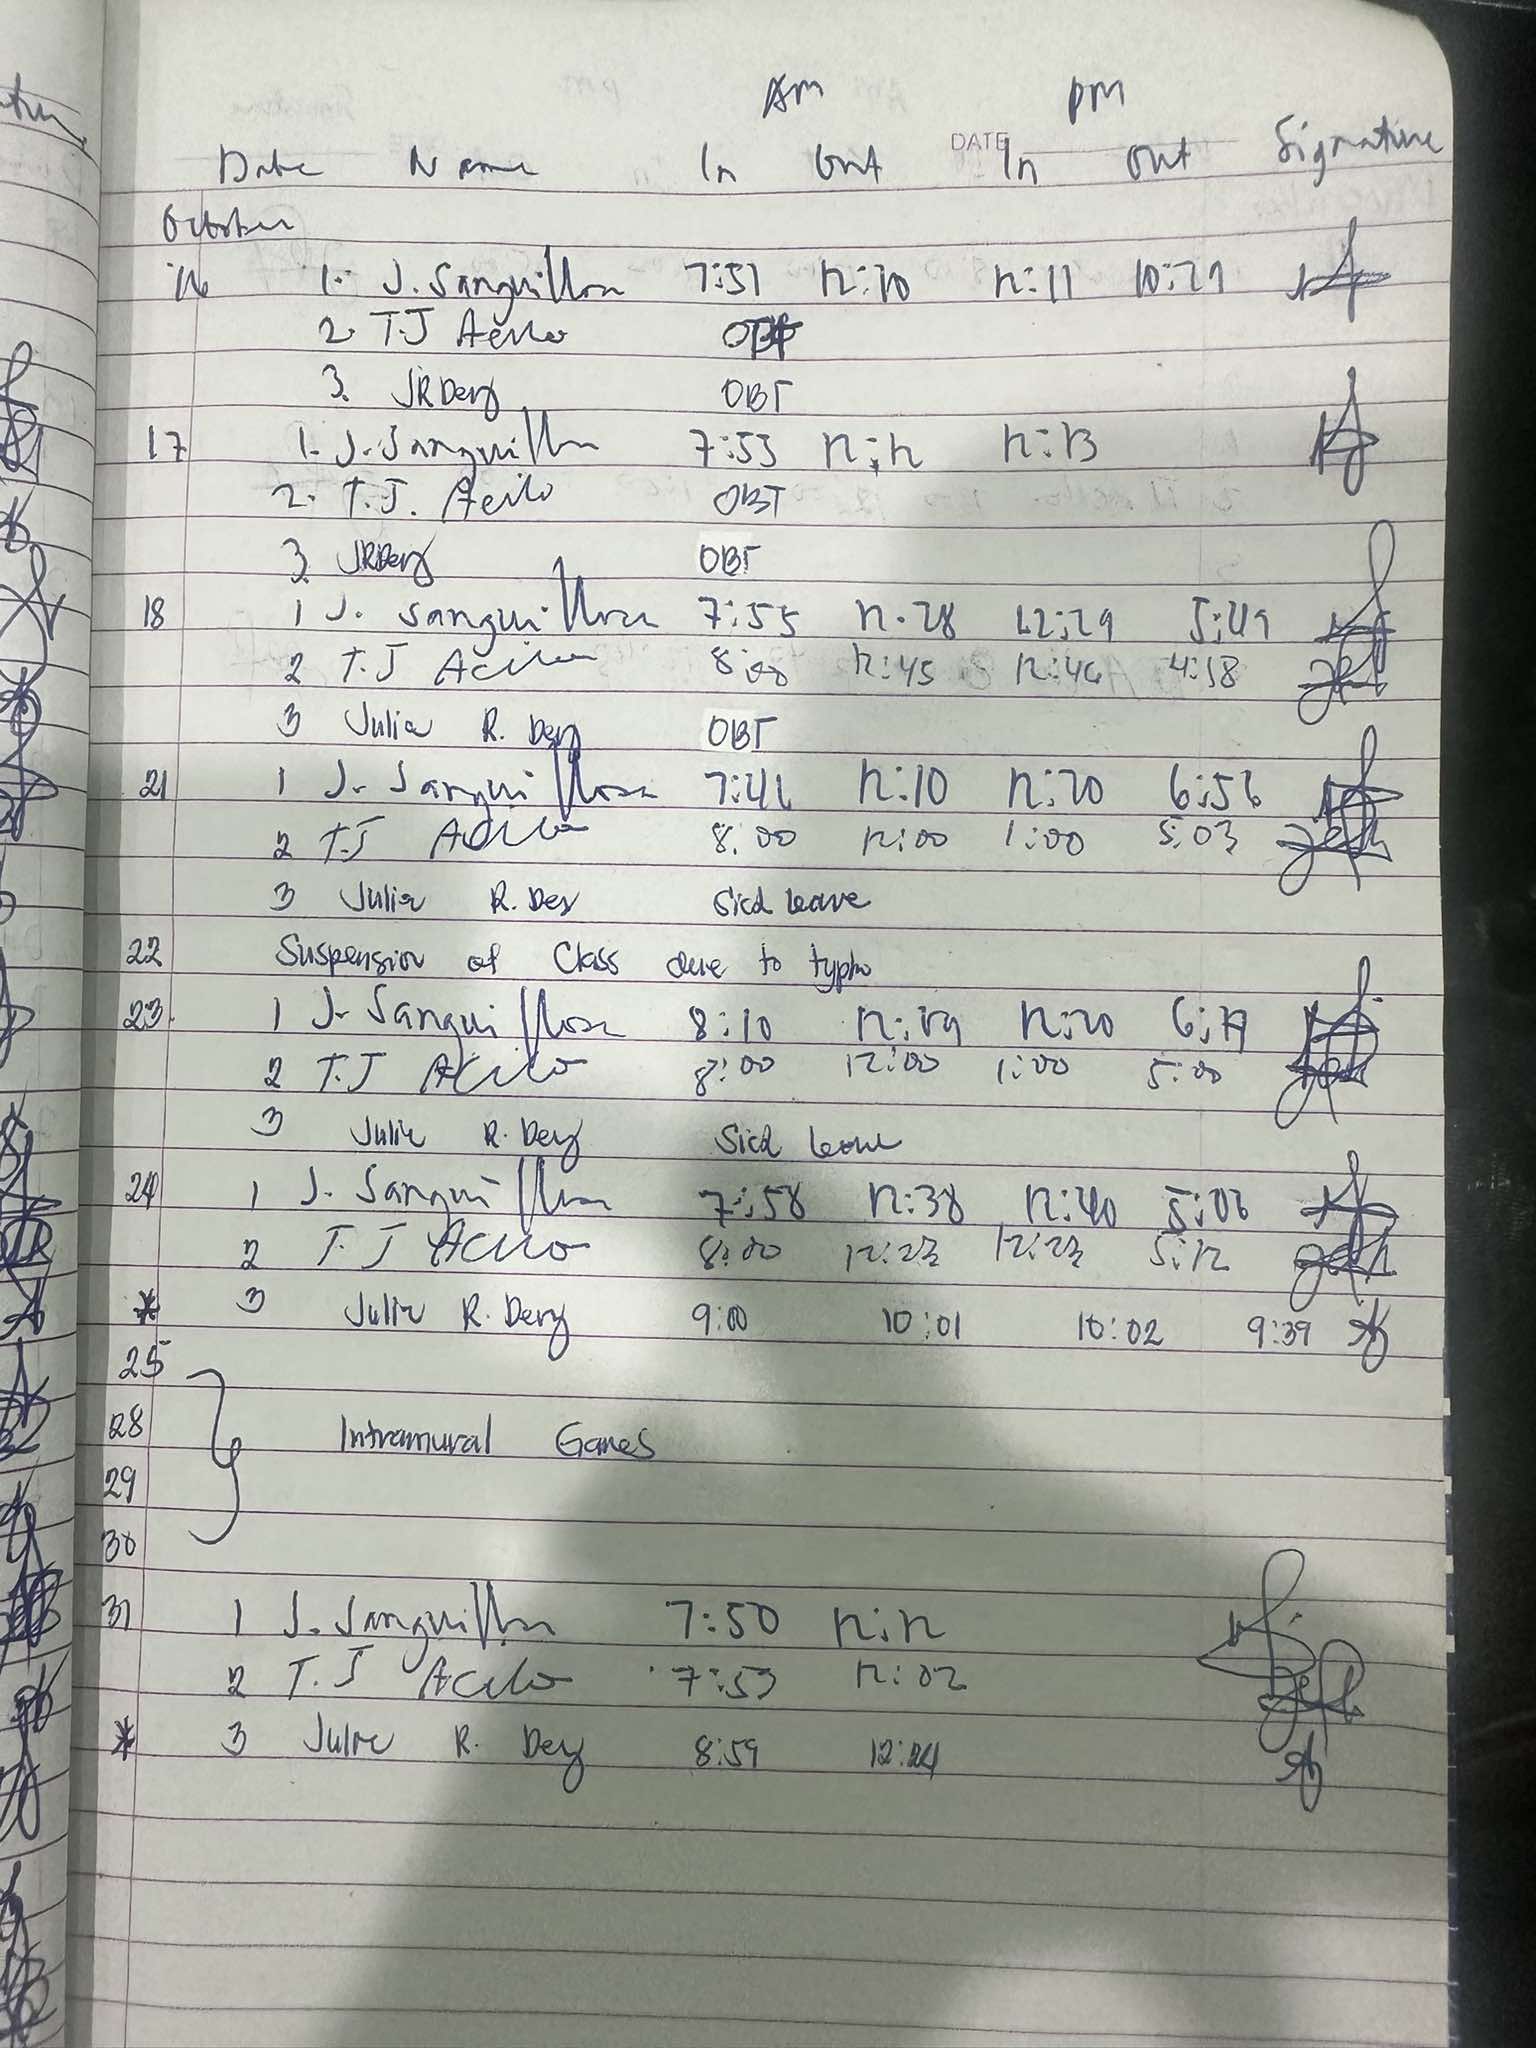 Am pm
DATE
Date Name In Out In Out Signature
October
16 1. J. Sanguillosa 7:51 12:10 12:11 10:29
2. T.J Acilo OBT
3. JRDery OBT
17 1. J. Sanguillosa 7:53 12:12 12:13
2. T.J. Acilo OBT
3. JRDery OBT
18 1 J. Sanguillosa 7:55 12:28 12:29 5:49
2 T.J Acilo 8:00 12:45 12:46 4:18
3 Julie R. Dery OBT
21 1 J. Sanguillosa 12:10 12:20 6:56
2 T.J Acilo 8:00 12:00 1:00 5:03
3 Julie R. Dery Sick leave
22 Suspension of Class due to typho
23 1 J. Sanguillosa 8:10 12:19 12:20
2 T.J Acilo 8:00 12:00 1:00 5:00
3 Julie R. Dery Sick leave
24 1 J. Sanguillosa 7:58 12:38 12:40 5:06
2 T.J Acilo 8:00 12:23 12:23 5:12
* 3 Julie R. Dery 9:00 10:01 10:02 9:39
25
28 Intramural Games
29
30
31 1 J. Sanguillosa 7:50 12:12
2 T.J Acilo 7:53 12:02
* 3 Julie R. Dery 8:59 12:24